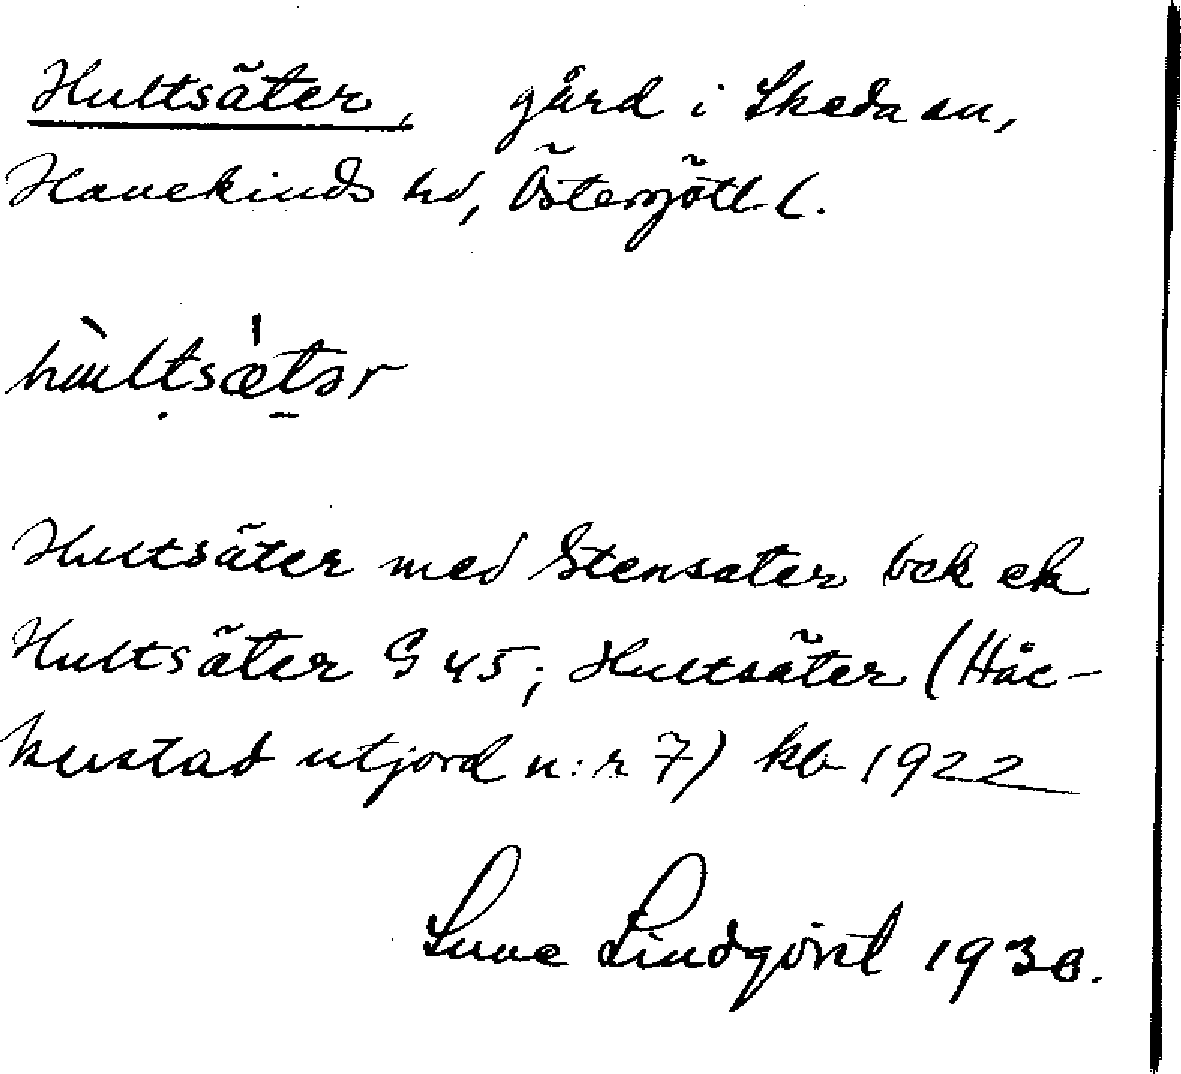 Hultsäter, gård i Skeda sn,
Hanekinds hd, Östergötl. l.
hultsætər
Hultsäter med Stensäter bek ek
Hultsäter G 45; Hultsäter (Hac-
kustad utjord n:r 7) kb 1922
Sune Lindqvist 1930.